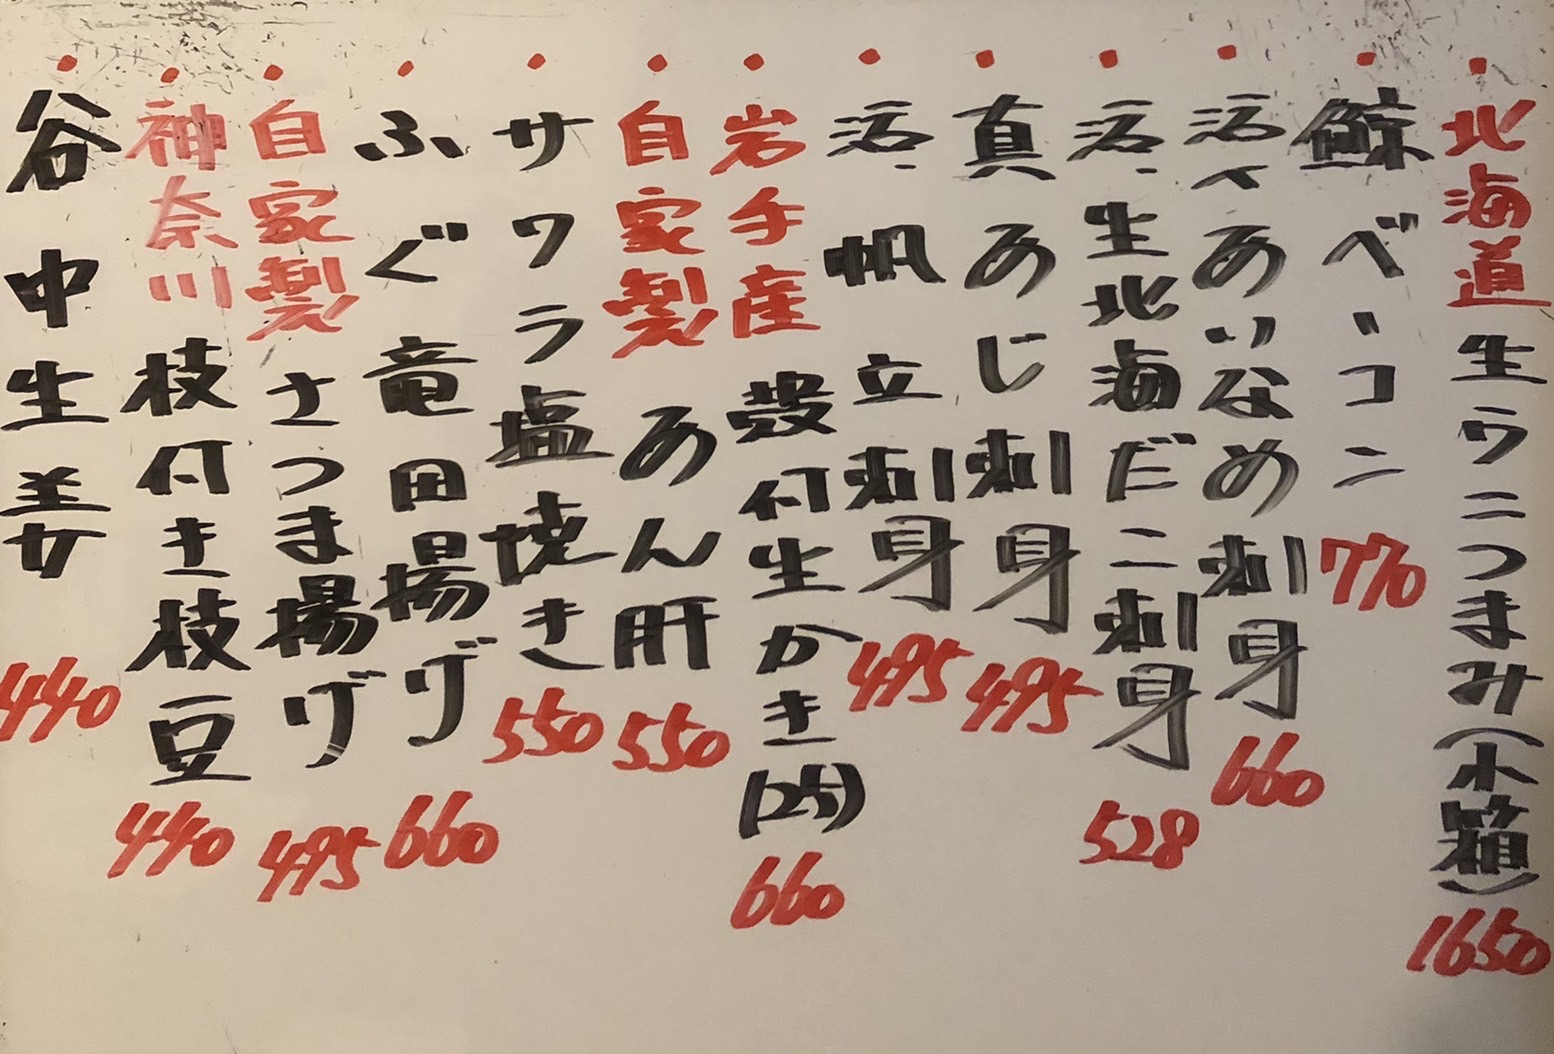 ・北海道 生ウニつまみ(小箱) 1650
・鯨ベーコン 770
・活〆あいなめ刺身 660
・活〆生北海だこ刺身 528
・真あじ刺身 495
・活〆帆立刺身 495
・岩手産 殻付生かき(2ケ) 660
・自家製 あん肝 550
・サワラ塩焼き 550
・ふぐ竜田揚げ 660
・自家製 さつま揚げ 495
・神奈川 枝付き枝豆 440
・谷中生姜 440